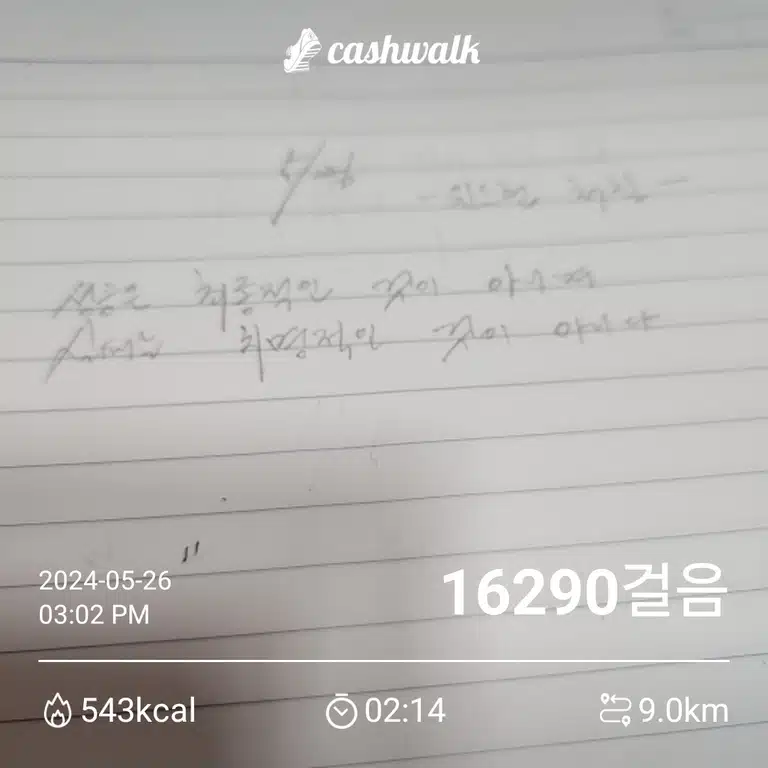 cashwalk
- 윈스턴 처칠 -
성공은 최종적인 것이
실패는 치명적인 것이 아니다
2024-05-26
03:02 PM
16290걸음
543kcal 02:14 9.0km